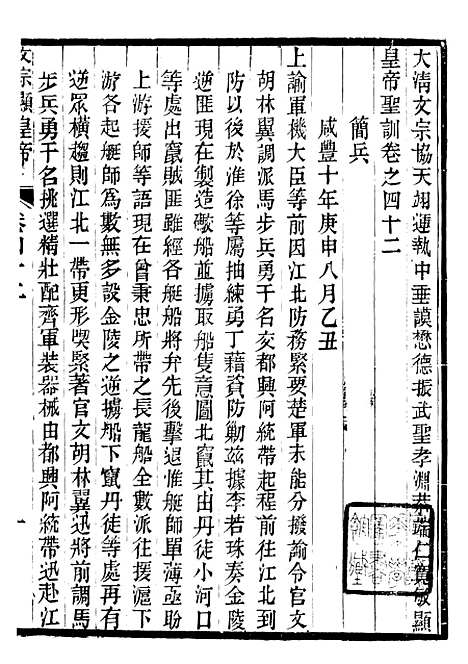 大清文宗協天翊運執中垂謨懋德振武聖孝淵恭端仁寬敏顯
皇帝聖訓卷之四十二
簡兵
咸豐十年庚申八月乙丑
上諭軍機大臣等前因江北防務緊要楚軍未能分撥諭令官文
胡林翼調派馬步兵勇千名交都興阿統帶起程前往江北到
防以後於淮徐等屬抽練勇丁藉資防勦茲據李若珠奏金陵
逆匪現在製造礮船並擄取船隻意圖北竄其由丹徒等小河口
等處出竄賊匪雖經各艇船將弁先後擊退惟艇師單薄亟盼
上游援師等語現在曾秉忠所帶之長龍船全數派往援滬下
游各起艇師爲數無多設金陵之逆擄船下竄丹徒等處之
逆眾橫趨則江北一帶更形喫緊著官文胡林翼迅將前調馬
步兵勇千名挑選精壯配齊軍裝器械由都興阿統帶迅赴江
文宗顯皇帝
卷四十二
一